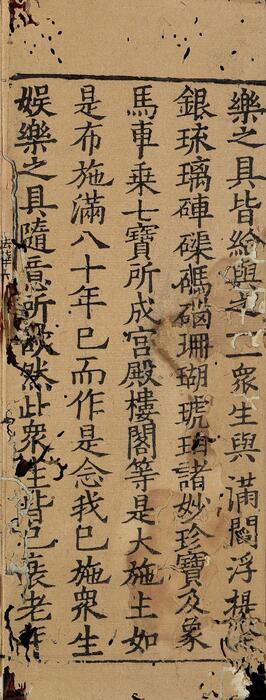 樂之具皆給與之一一衆生與滿閻浮提金
銀琉璃硨磲碼碯珊瑚琥珀諸妙珍寶及象
馬車乗七寶所成宮殿樓閣等是大施主如
是布施滿八十年已而作是念我已施衆生
娛樂之具隨意所欲然此衆生皆已衰老年